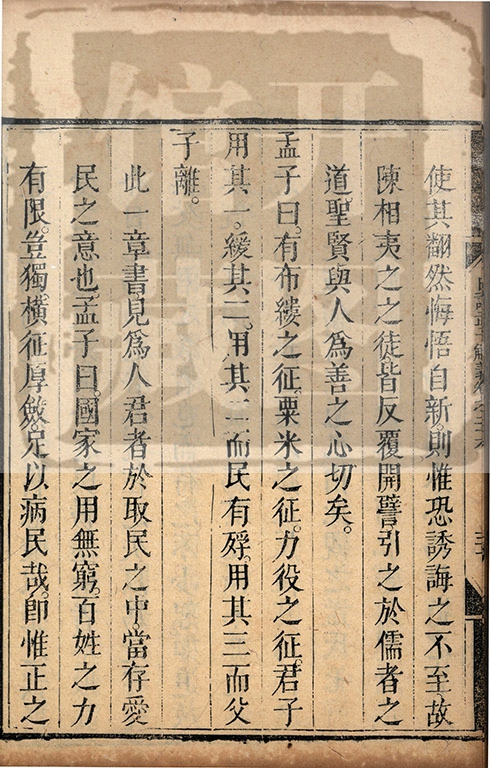 使其翻然悔悟自新。則惟恐誘誨之不至。故
陳相夷之之徒。皆反覆開譬。引之於儒者之
道。聖賢與人為善之心切矣。
孟子曰。有布縷之征。粟米之征。力役之征。君子
用其一。緩其二。用其二而民有殍。用其三而父
子離。
此一章書。見為人君者。於取民之中。當存愛
民之意也。孟子曰。國家之用無窮。百姓之力
有限。豈獨橫征厚斂。足以病民哉。即惟正之